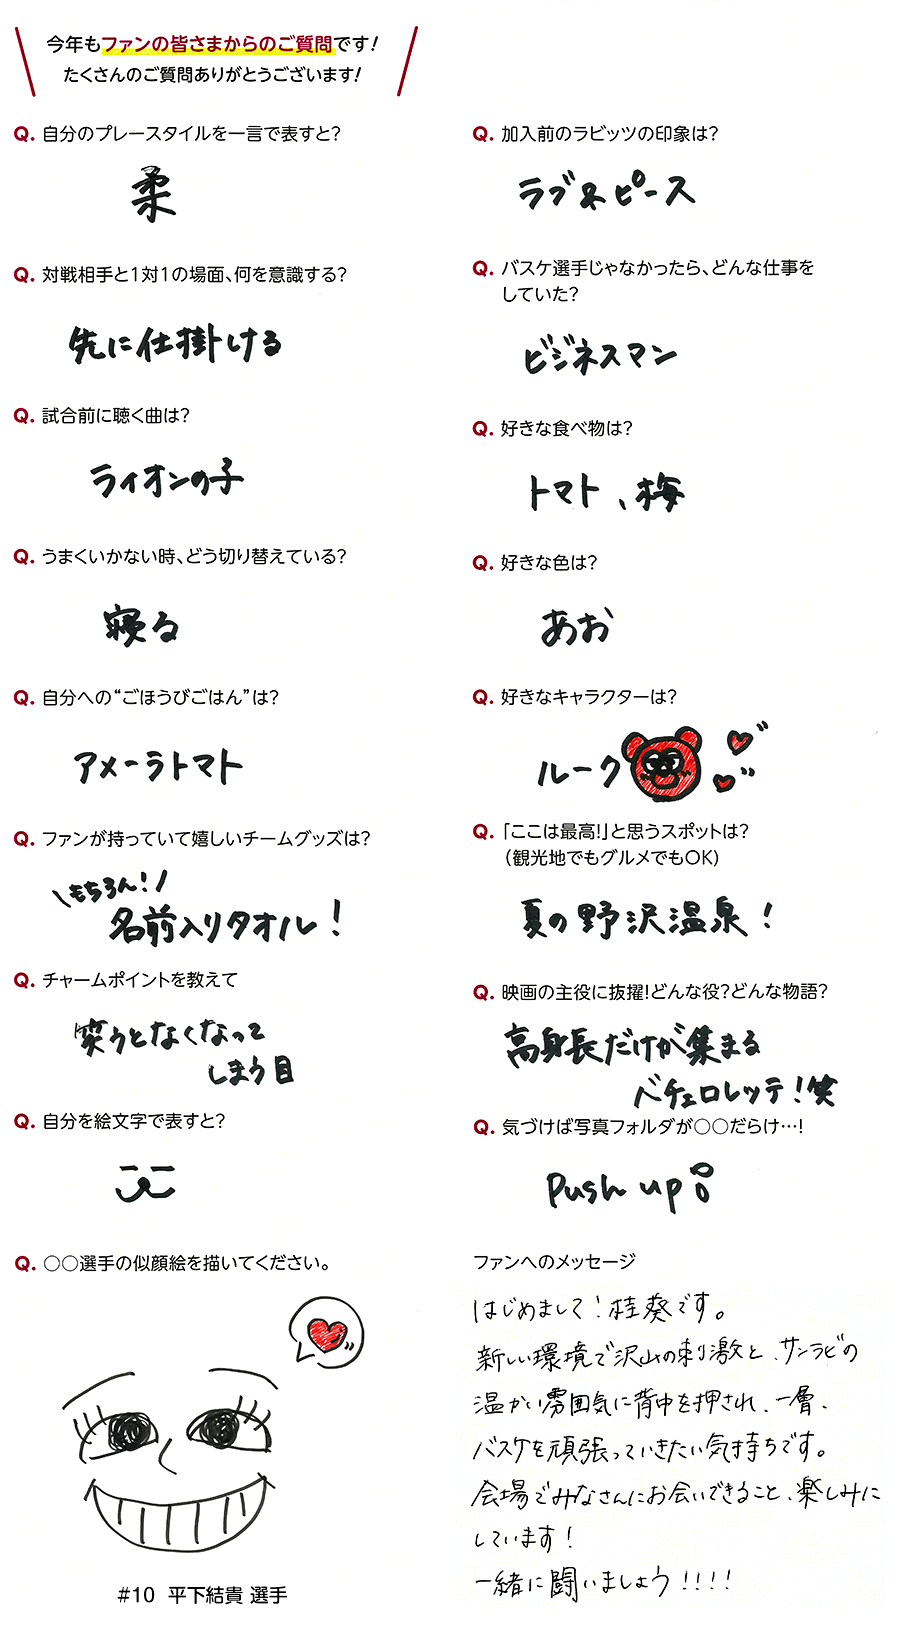 今年もファンの皆さまからのご質問です!
たくさんのご質問ありがとうございます!
Q. 自分のプレースタイルを一言で表すと?
柔
Q. 対戦相手と1対1の場面、何を意識する?
先に仕掛ける
Q. 試合前に聴く曲は?
ライオンの子
Q. うまくいかない時、どう切り替えている?
寝る
Q. 自分への“ごほうびごはん”は?
アメーラトマト
Q. ファンが持っていて嬉しいチームグッズは?
\もちろん!/
名前入りタオル!
Q. チャームポイントを教えて
笑うとなくなって
しまう目
Q. 自分を絵文字で表すと?
Q. ○○選手の似顔絵を描いてください。
#10 平下結貴 選手
Q. 加入前のラビッツの印象は?
ラブ&ピース
Q. バスケ選手じゃなかったら、どんな仕事を
していた?
ビジネスマン
Q. 好きな食べ物は?
トマト、梅
Q. 好きな色は?
あお
Q. 好きなキャラクターは?
ルーク
Q. 「ここは最高!」と思うスポットは?
(観光地でもグルメでもOK)
夏の野沢温泉!
Q. 映画の主役に抜擢!どんな役?どんな物語?
高身長だけが集まる
バチェロレッテ!笑
Q. 気づけば写真フォルダが○○だらけ…!
Push up!
ファンへのメッセージ
はじめまして!桂葵です。
新しい環境で沢山の刺激と、サンラビの
温かい雰囲気に背中を押され、一層、
バスケを頑張っていきたい気持ちです。
会場でみなさんにお会いできること、楽しみに
しています!
一緒に闘いましょう!!!!